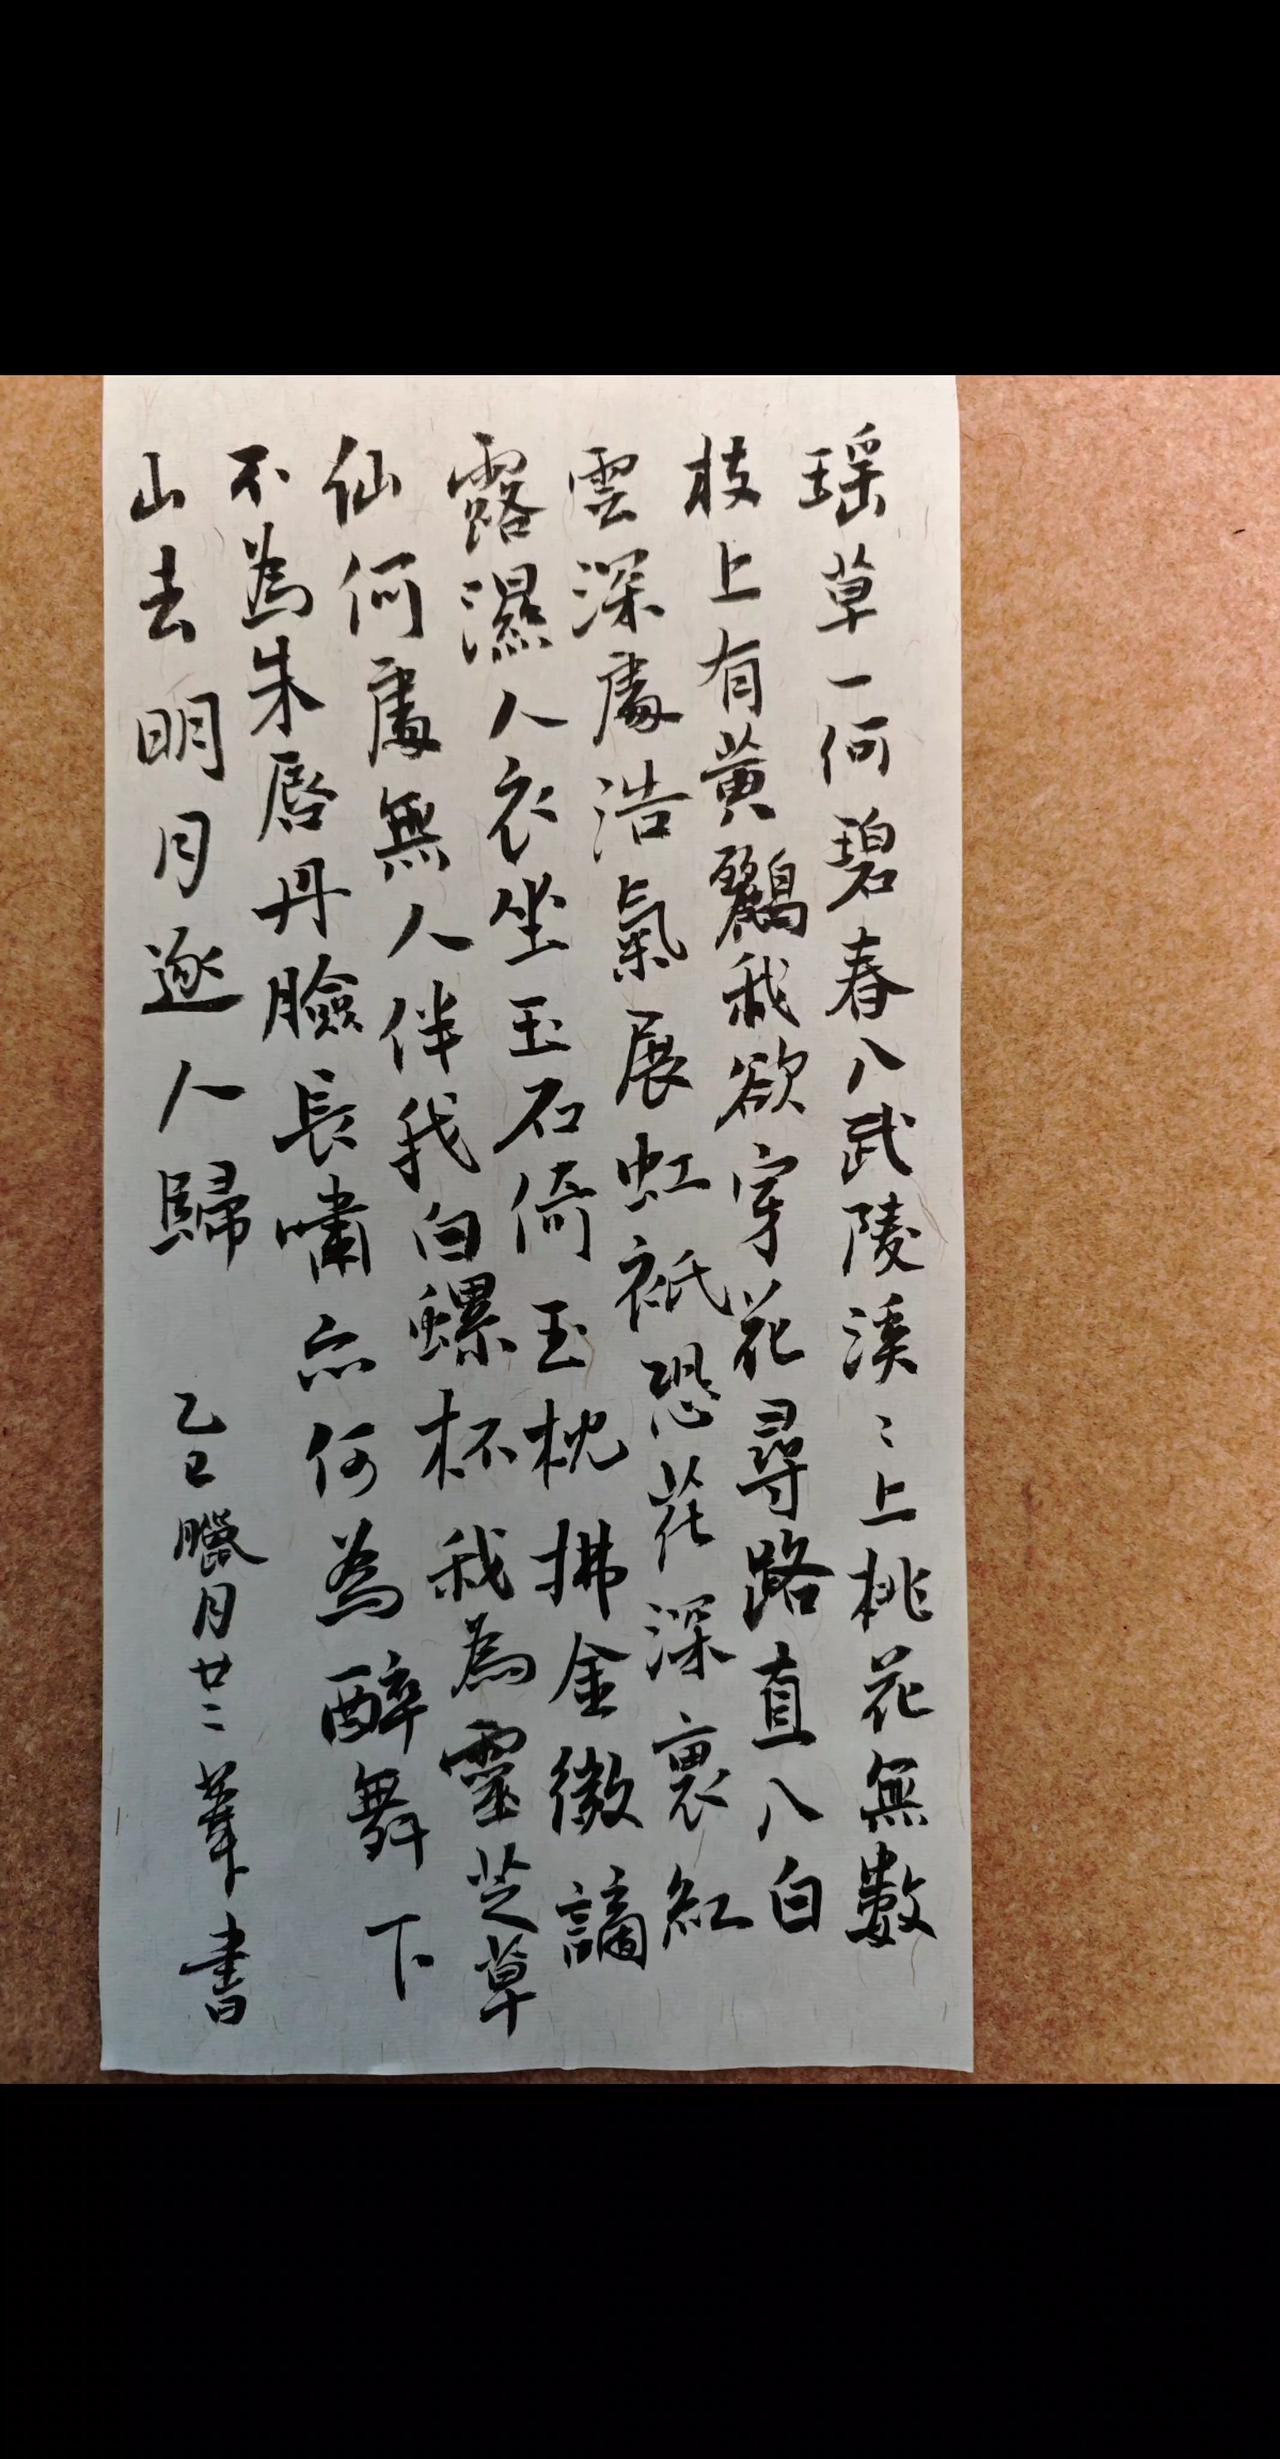 瑶草一何碧春入武陵溪〻上桃花無數
枝上有黄鸝我欲穿花尋路直入白
雲深處浩氣展虹祇恐花深裏紅
露濕人衣坐玉石倚玉枕拂金徽謫
仙何處無人伴我白螺杯我為靈芝草
不為朱唇丹臉長嘯亦何為醉舞下
山去明月逐人歸
乙巳臘月廿二葦書